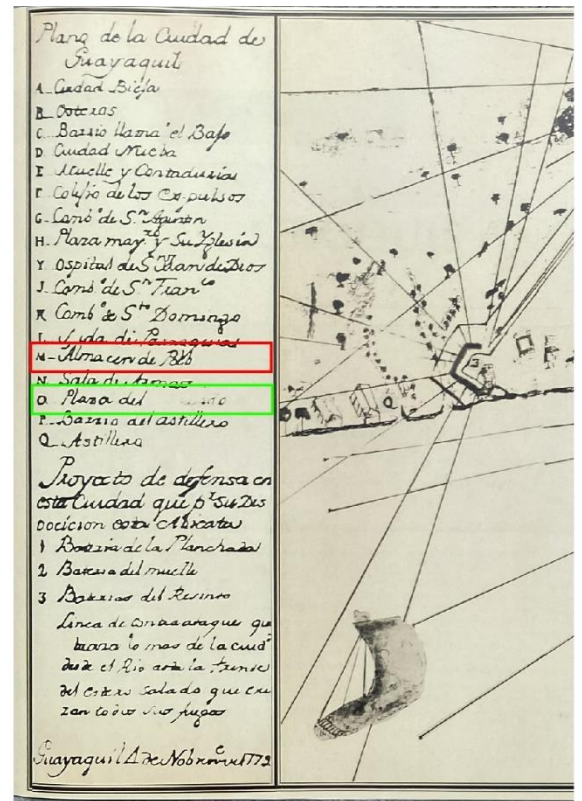 Plano de la Ciudad de
Guayaquil
A. Ciudad Bieja
B.
C. Barrio llama el Bajo
D. Ciudad Nueba
E Muelle y Contadurias
F Colejio de los Expulsos
G. Comb.to de S.n Agustin
H. Plaza may.r y Su Yglesia
Y Ospital de S.n Juan de Dios
J. Comb.to de S.n Fran.co
K Comb.to de S.to Domingo
M- Almacen de
N. Sala de Armas
O. Plaza del
P. Barrio del astillero
Q Astillero
Proyecto de defensa en
esta Ciudad que p.r Su Dis
Docicion esta
1 Bateria de la Planchada
2 Bateria del muelle
3 del Resinto
Linea de que
lo mas de la ciud.d
desde el Rio
del estero Salado que cru
zan todos sus fuegos
Guayaquil 4 de 1772